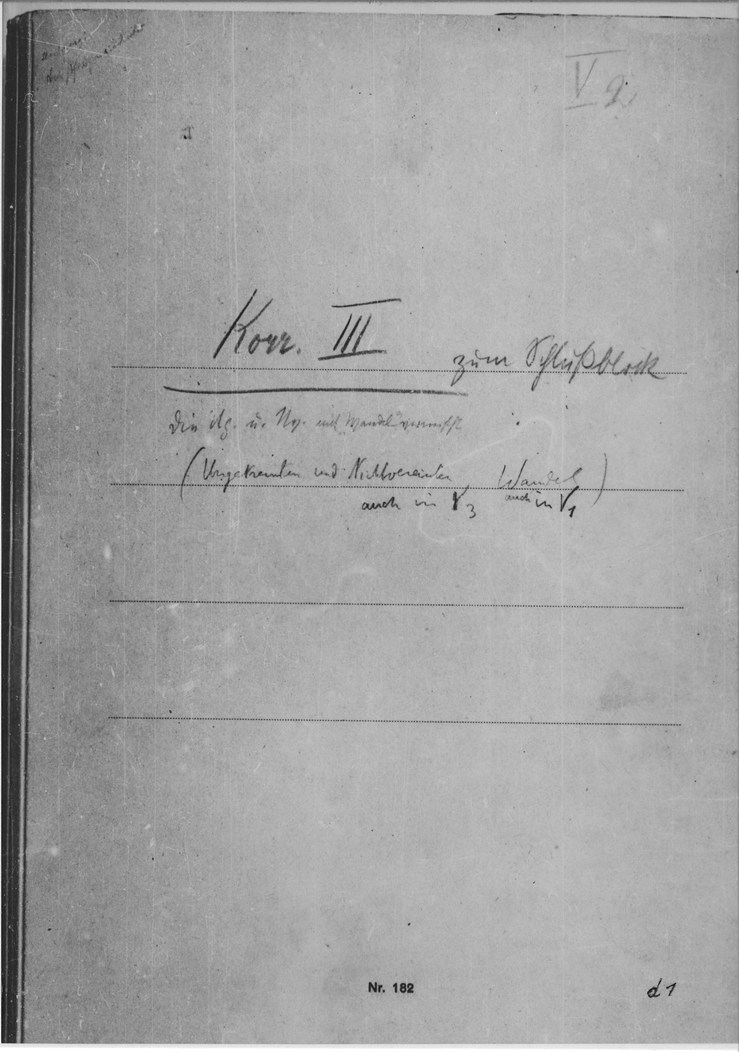 V 2
Korr. III zum Schlußblock
Die Ug. u. Nv. mit "Wandel"
(Ungetrennten und Nichtvereinten, Wandel)
auch in V3 auch in V1
Nr. 182
d1